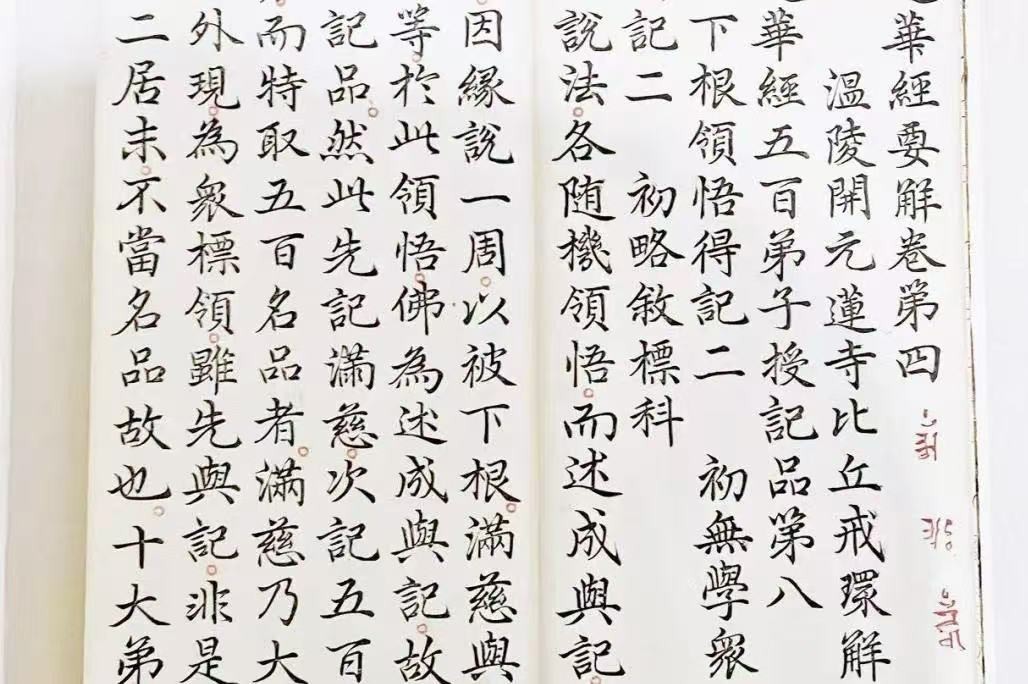 華經要解卷第四
溫陵開元蓮寺比丘戒環解
華經五百弟子授記品第八
下根領悟得記二 初無學衆
記二 初略敘標科
說法。各随機領悟。而述成與記。
因緣說一周。以被下根。滿慈與
等。於此領悟。佛為述成與記。故
記品。然此先記滿慈。次記五百
而特取五百名品者。滿慈乃大
外現。為衆標領。雖先與記。非是
二居末。不當名品故也。十大弟